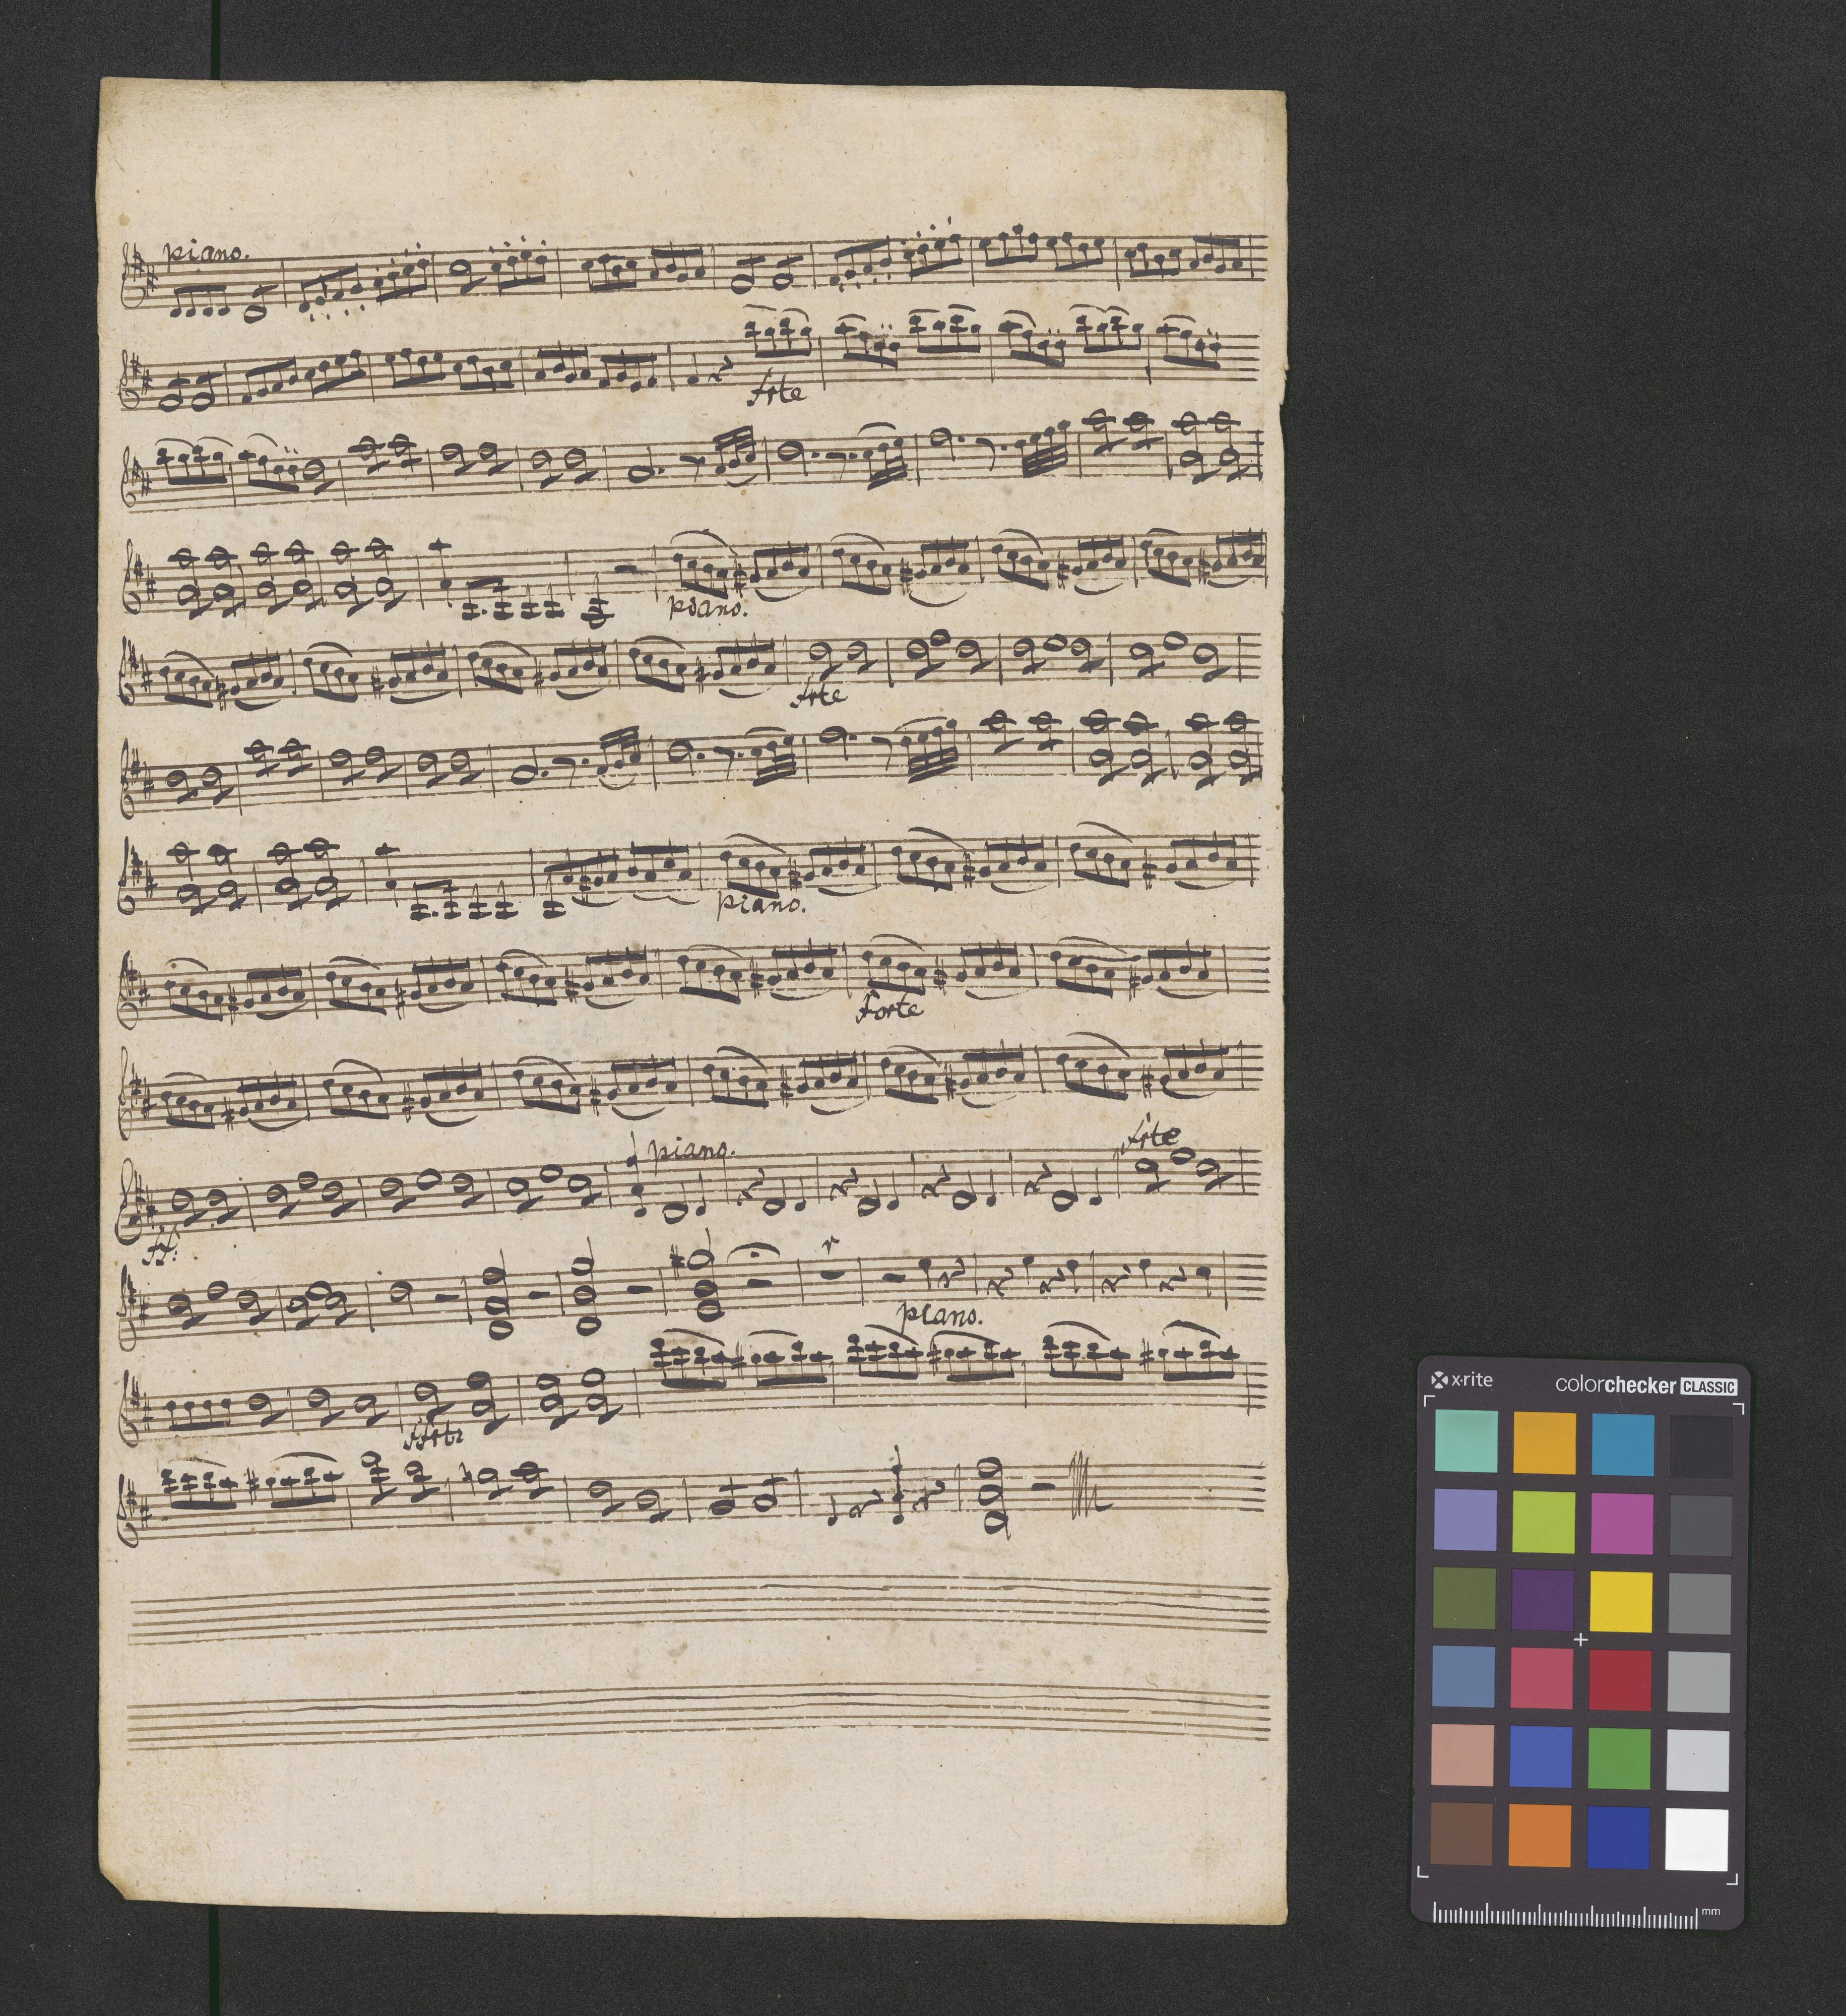 piano.
frte
piano.
frte
piano.
Forte
piano.
frte
ff:
piano.
x-rite
colorchecker CLASSIC
mm